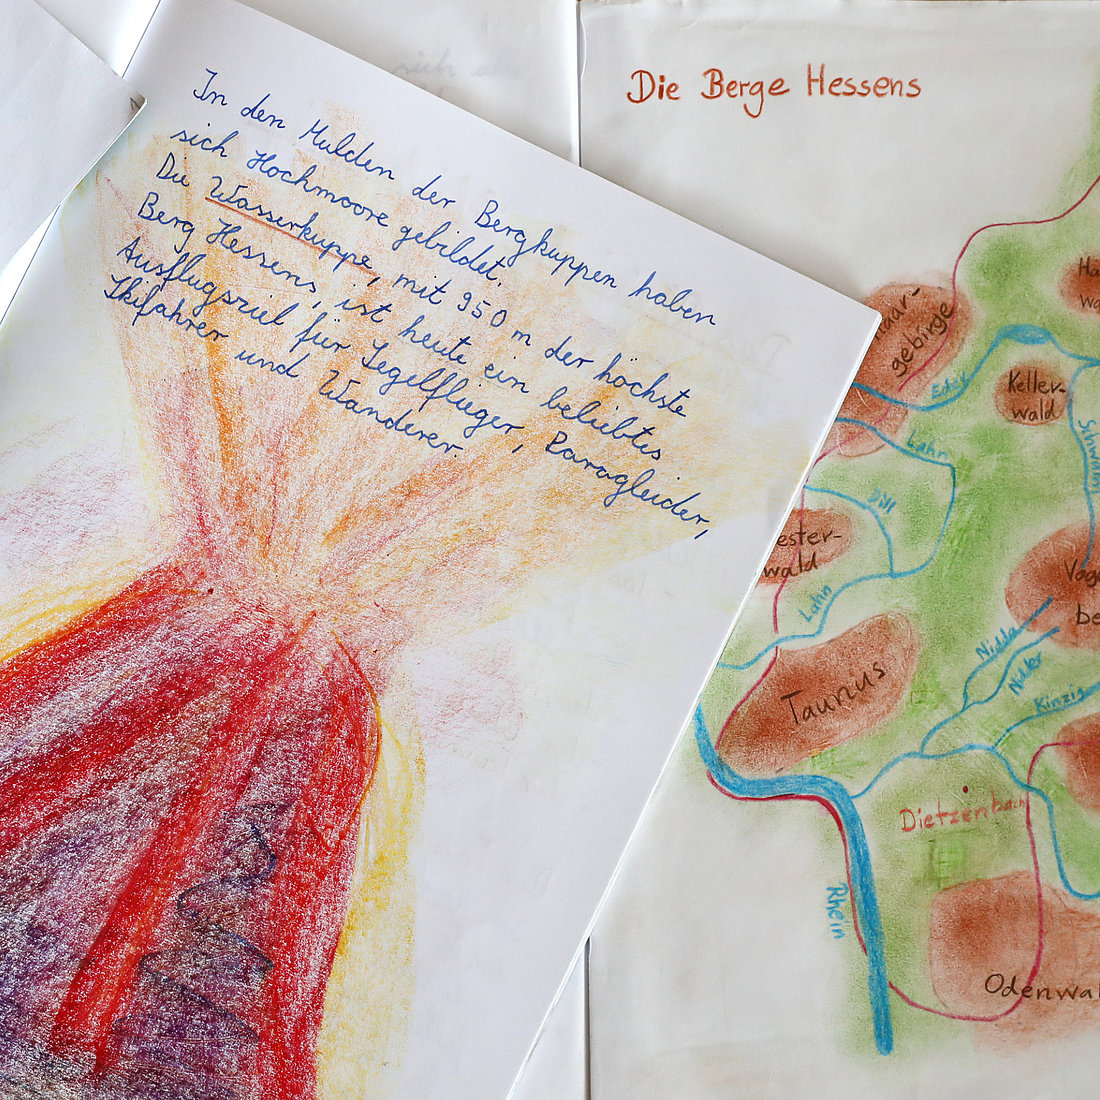 In den Mulden der Bergkuppen haben
sich Hochmoore gebildet.
Die Wasserkuppe, mit 950 m der höchste
Berg Hessens, ist heute ein beliebtes
Ausflugsziel für Segelflieger, Paragleider,
Skifahrer und Wanderer.
Die Berge Hessens
gebirge
Eder
Keller-
wald
Schwalm
Lahn
Dill
ester-
wald
Lahn
Voge
be
Nidda
Nidder
Kinzig
Taunus
Dietzenbach
Rhein
Odenwal